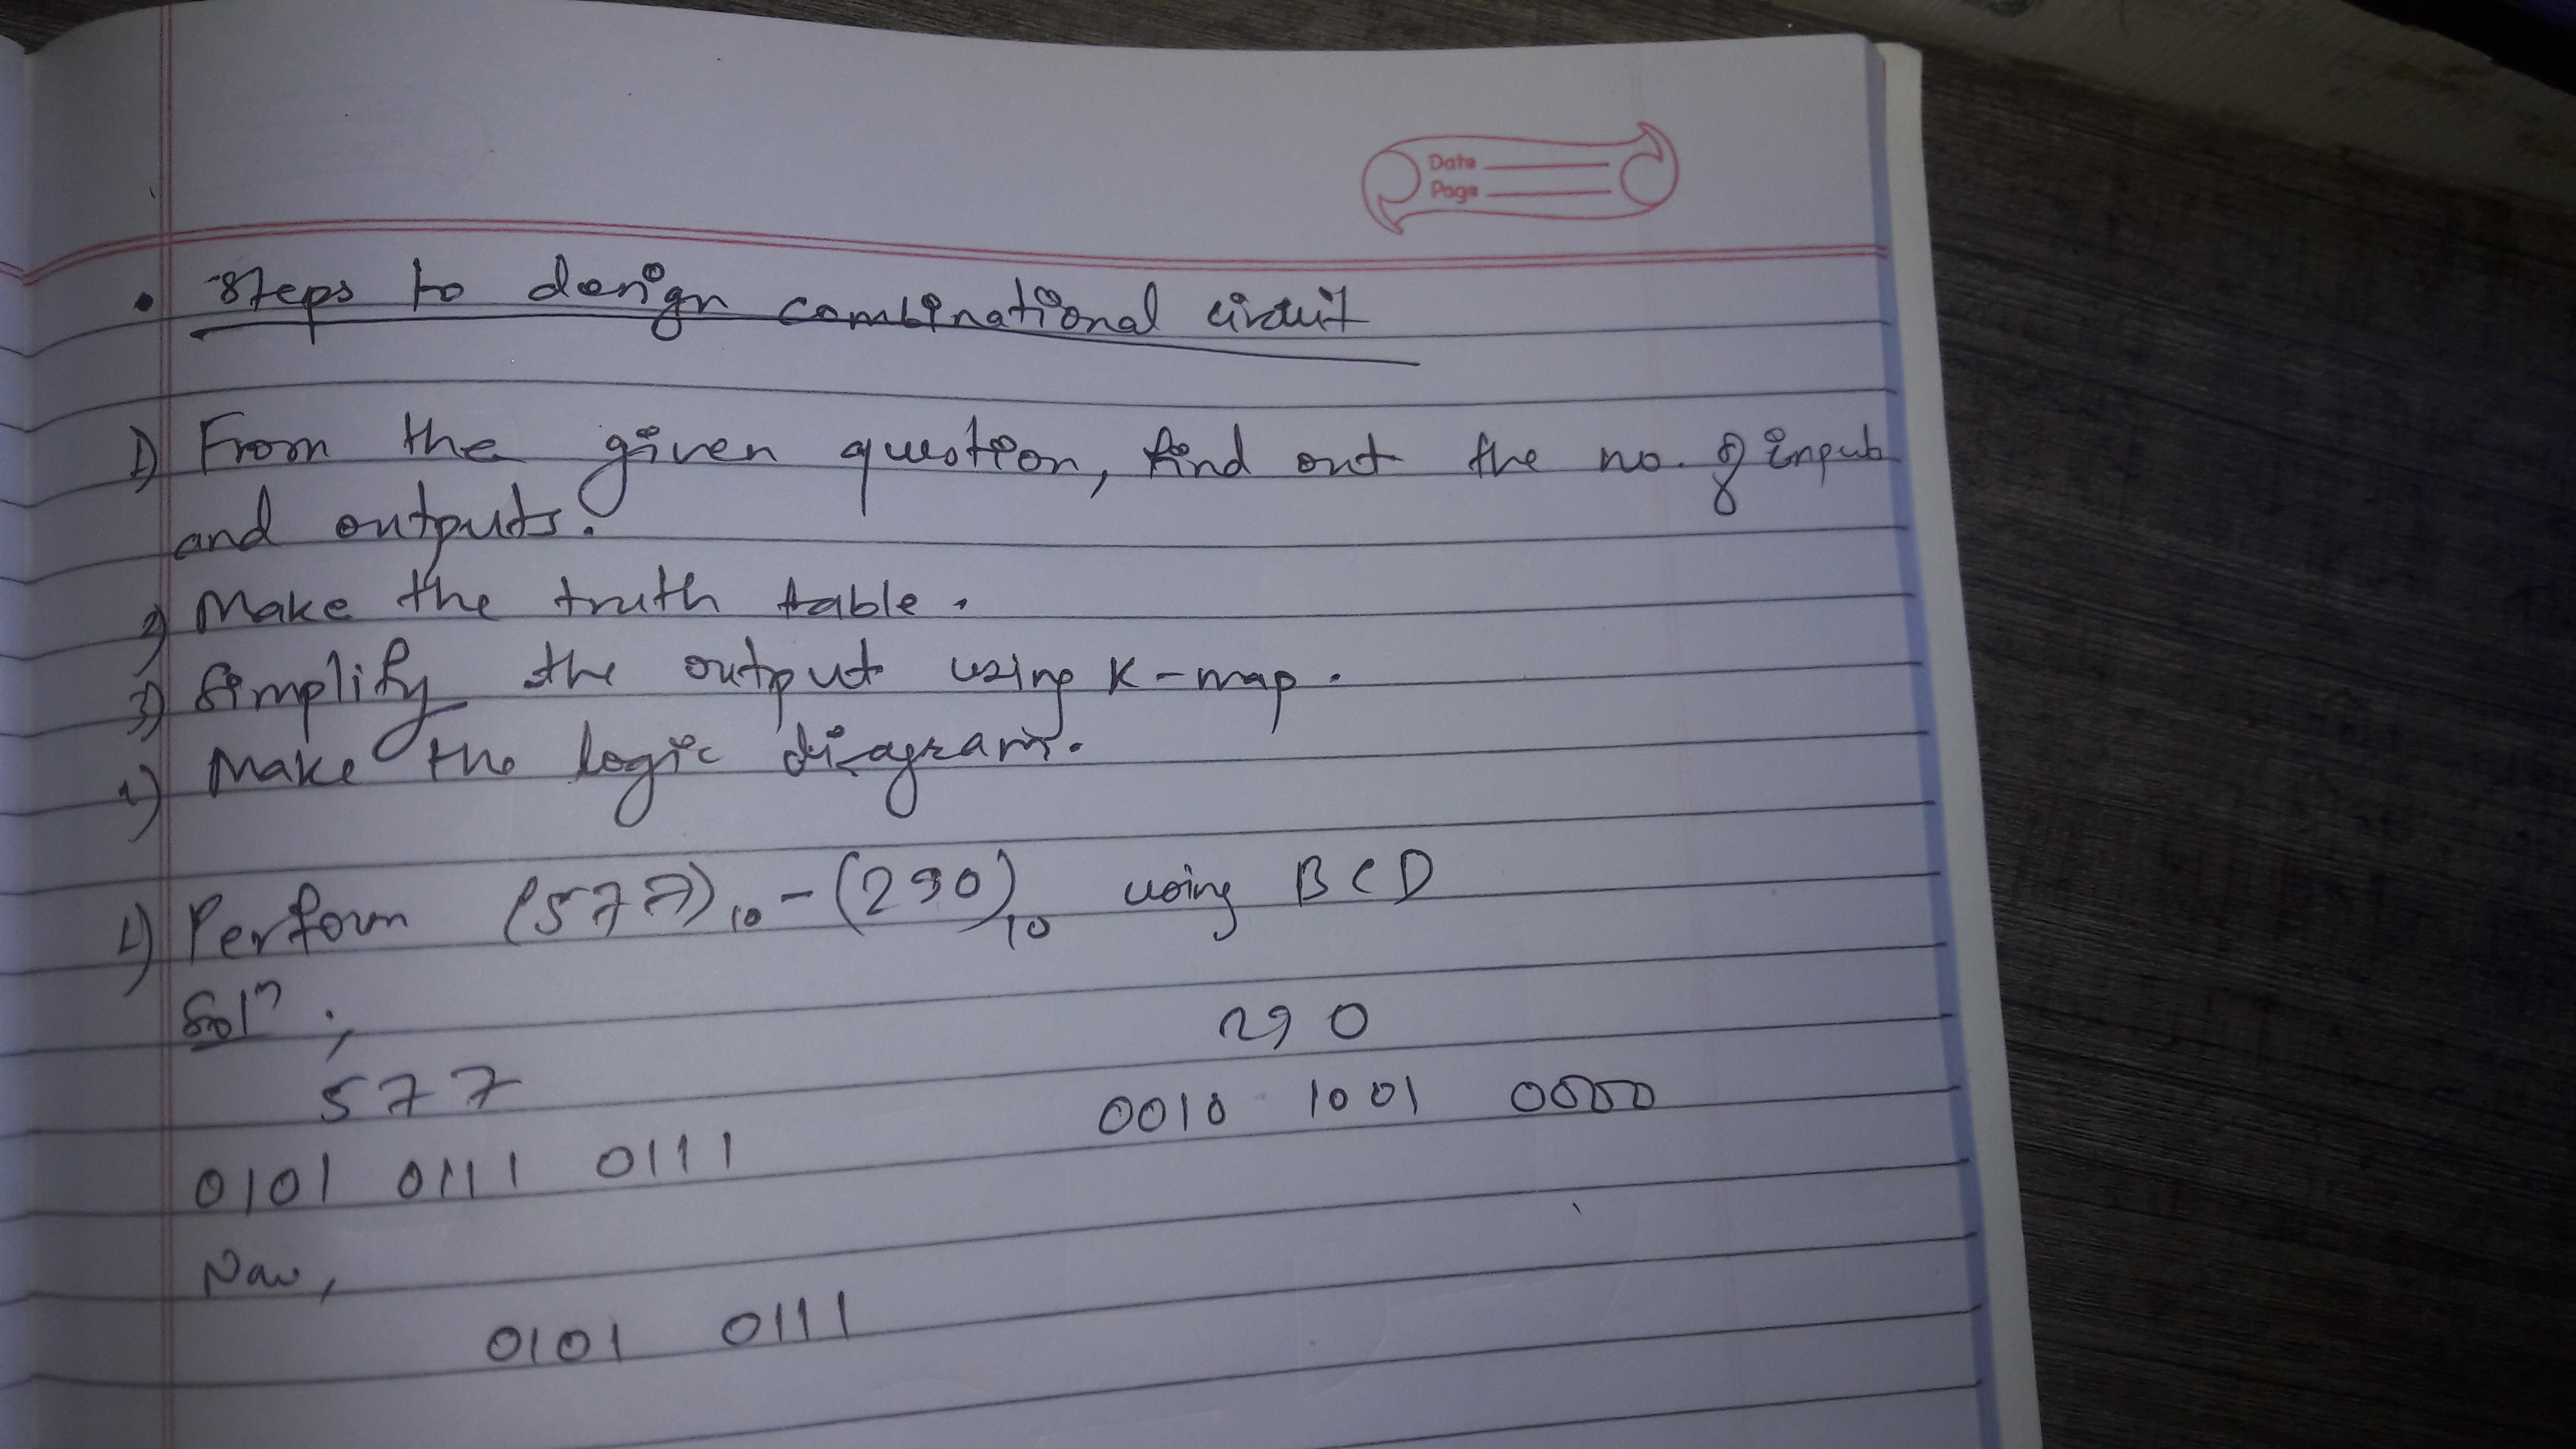 Date
Page
• Steps to design combinational circuit
1) From the given question, find out the no. of inputs
and outputs.
2) Make the truth table.
3) Simplify the output using K-map.
4) Make the logic diagram.
1) Perform (577)10 - (290)10 using BCD
Solⁿ,
577 290
0101 0111 0111 0010 1001 0000
Now,
0101 0111